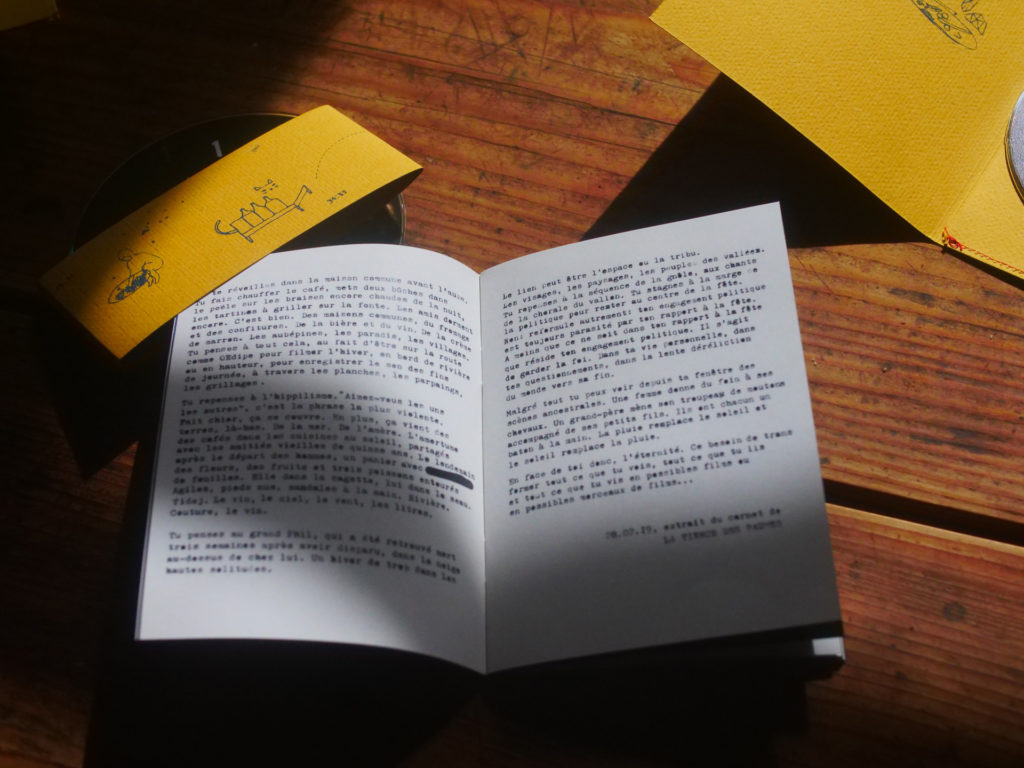 1
34:53
te réveilles dans la maison commune avant l'aube.
Tu fais chauffer le café, mets deux bûches dans
le poêle sur les braises encore chaudes de la nuit,
les tartines à griller sur la fonte. Les amis dorment
encore. C'est bien. Des maisons communes, du fromage
et des confitures. De la bière et du vin. De la crème
de marron. Les aubépines, les paradis, les villages.
Tu penses à tout cela, au fait d'être sur la route
comme OEdipe pour filmer l'hiver, en bord de rivière
ou en hauteur, pour enregistrer le son des fins
de journée, à travers les planches, les parpaings,
les grillages.
Tu repenses à l'hippilisme. "Aimez-vous les uns
les autres", c'est la phrase la plus violente.
Fait chier, ça se couvre. En plus, ça vient des
terres, là-bas. De la mer. De l'amère. L'amertume
des cafés dans les cuisines au soleil, partagés
avec les amitiés vieilles de quinze ans. Le lendemain
après le départ des hommes, un panier avec
des fleurs, des fruits et trois poissons entourés
de feuilles. Elle dans la cagette, lui dans le seau.
Agiles, pieds nus, sandales à la main. Rivière.
Tidej. Le vin, le miel, le vent, les litres.
Couture, le vin.
Tu penses au grand Phil, qui a été retrouvé mort
trois semaines après avoir disparu, dans la neige
au-dessus de chez lui. Un hiver de trop dans les
hautes solitudes.
Le lien peut être l'espace ou la tribu.
Les visages, les paysages, les peuples des vallées.
Tu repenses à la séquence de la gnôle, aux chants
de la chorale du vallon. Tu t'éloignes à la marge de
la politique pour rester au centre de la fête.
René reformule autrement: ton engagement politique
est toujours parasité par ton rapport à la fête.
A moins que ce ne soit dans ton rapport à la fête
que réside ton engagement politique. Il s'agit
de garder la foi. Dans ta vie personnelle, dans
tes questionnements, dans la lente déréliction
du monde vers sa fin.
Malgré tout tu peux voir depuis ta fenêtre des
scènes ancestrales. Une femme donne du foin à ses
chevaux. Un grand-père mène son troupeau de moutons
accompagné de ses petits fils. Ils ont chacun un
baton à la main. La pluie remplace le soleil et
le soleil remplace la pluie.
En face de toi donc, l'éternité. Ce besoin de trans
former tout ce que tu vois, tout ce que tu lis
et tout ce que tu vis en possibles films ou
en possibles morceaux de films...
28.07.19, extrait du carnet de
LA VIERGE DES PAUMES